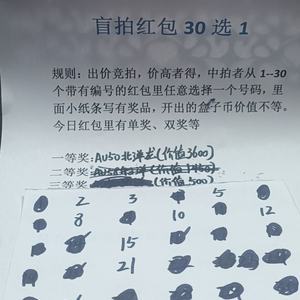 盲拍红包 30 选 1
规则：出价竞拍，价高者得，中拍者从 1--30
个带有编号的红包里任意选择一个号码，里
面小纸条写有奖品，开出的盒子币价值不等。
今日红包里有单奖、双奖等
一等奖：AU50北洋龙(价值3600)
二等奖：
三等奖：(价值500)
2 3 5
8 10 12
15
21